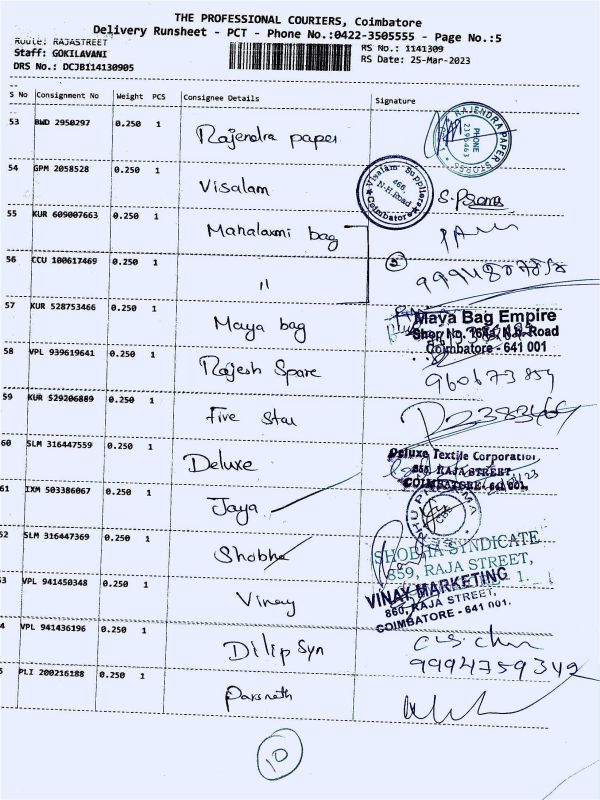 THE PROFESSIONAL COURIERS, Coimbatore
Delivery Runsheet - PCT - Phone No.:0422-3505555 - Page No.:5
Route: RAJASTREET
RS No.: 1141309
Staff: GOKILAVANI
RS Date: 25-Mar-2023
DRS No.: DCJB114130905
S No Consignment No Weight PCS Consignee Details Signature
53 BWD 2950297 0.250 1 Rajendra paper
RAJENDRA PAPER STORES PHONE 2396463
54 GPM 2058528 0.250 1 Visalam
Visalam Suppliers 466 N.H. Road Coimbatore
55 KUR 609007663 0.250 1 Mahalaxmi bag
56 CCU 100617469 0.250 1 "
57 KUR 528753466 0.250 1 Maya bag
Maya Bag Empire
Coimbatore - 641 001
58 VPL 939619641 0.250 1 Rajesh Spare
59 KUR 529206889 0.250 1 Five Star
60 SLM 316447559 0.250 1 Deluxe
Deluxe Textile Corporation
RAJA STREET
COIMBATORE - 641 001.
61 IXM 503386067 0.250 1 Jaya
52 SLM 316447369 0.250 1 Shobha
SHOBHA SYNDICATE
859, RAJA STREET,
3 VPL 941450348 0.250 1 Vinay
VINAY MARKETING
860, RAJA STREET,
COIMBATORE - 641 001.
4 VPL 941436196 0.250 1 Dilip Syn
9994759342
5 PLI 200216188 0.250 1 Parsnath
10